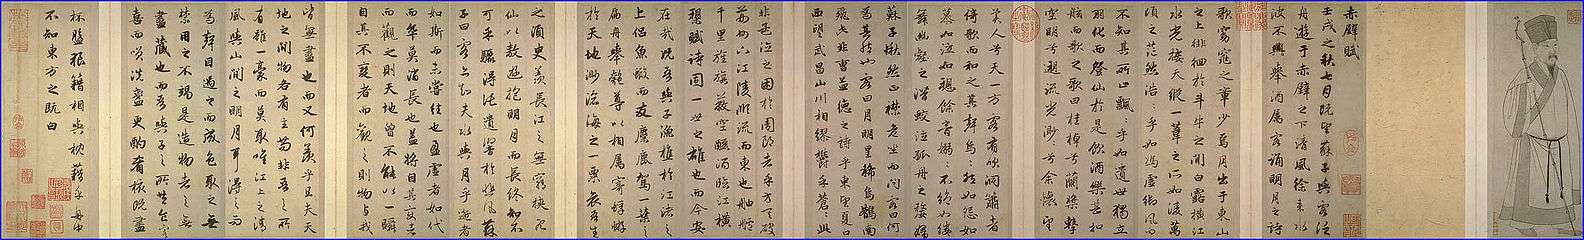 赤壁賦
壬戌之秋七月既望蘇子與客泛
舟遊于赤壁之下清風徐來水
波不興舉酒屬客誦明月之詩
歌窈窕之章少焉月出于東山
之上徘徊於斗牛之間白露橫江
水光接天縱一葦之所如淩萬
頃之茫然浩浩乎如馮虛御風而
不知其所止飄飄乎如遺世獨立
羽化而登仙於是飲酒樂甚扣
舷而歌之歌曰桂棹兮蘭槳擊
空明兮遡流光渺渺兮余懷望
美人兮天一方客有吹洞簫者
倚歌而和之其聲嗚嗚然如怨如
慕如泣如訴餘音嫋嫋不絕如縷
舞幽壑之潛蛟泣孤舟之嫠婦
蘇子愀然正襟危坐而問客曰何
為其然也客曰月明星稀烏鵲南
飛此非曹孟德之詩乎東望夏口
西望武昌山川相繆鬱乎蒼蒼此
非孟德之困於周郎者乎方其破
荊州下江陵順流而東也舳艫
千里旌旗蔽空釃酒臨江橫
槊賦詩固一世之雄也而今安
在哉況吾與子漁樵於江渚之
上侶魚蝦而友麋鹿駕一葉之
扁舟舉匏尊以相屬寄蜉蝣
於天地渺滄海之一粟哀吾生
之須臾羨長江之無窮挾飛
仙以遨遊抱明月而長終知不
可乎驟得託遺響於悲風蘇
子曰客亦知夫水與月乎逝者
如斯而未嘗往也盈虛者如代
而卒莫消長也蓋將自其變者
而觀之則天地曾不能以一瞬
自其不變者而觀之則物與我
皆無盡也而又何羨乎且夫天
地之間物各有主苟非吾之所
有雖一毫而莫取惟江上之清
風與山間之明月耳得之而
為聲目遇之而成色取之無
禁用之不竭是造物者之無
盡藏也而吾與子之所共食客
喜而笑洗盞更酌肴核既盡
杯盤狼籍相與枕藉乎舟中
不知東方之既白